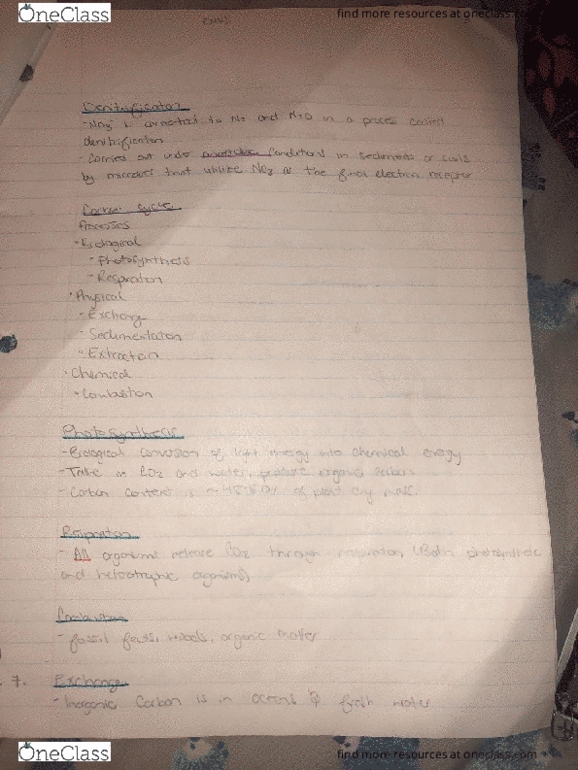 OneClass
find more resources at oneclass.com
Denitrification
- NO3 is converted to N2 and N2O in a process called
denitrification
- Carried out under conditions in sediments or soils
by microbes that utilize NO3 as the final electron receptor
Carbon cycle
Processes
- Biological
- Photosynthesis
- Respiration
· Physical
- Exchange
- Sedimentation
- Extraction
· Chemical
- Combustion
Photosynthesis
- Biological conversion of light energy into chemical energy
- Take in CO2 and water, produce organic carbon
- Carbon content is ~45-50% of plant dry mass
Respiration
- All organisms release CO2 through respiration (Both photosynthetic
and heterotrophic organisms)
Combustion
- fossil fuels, woods, organic matter
7. Exchange
- Inorganic Carbon is in oceans & fresh water
OneClass
find more resources at oneclass.com